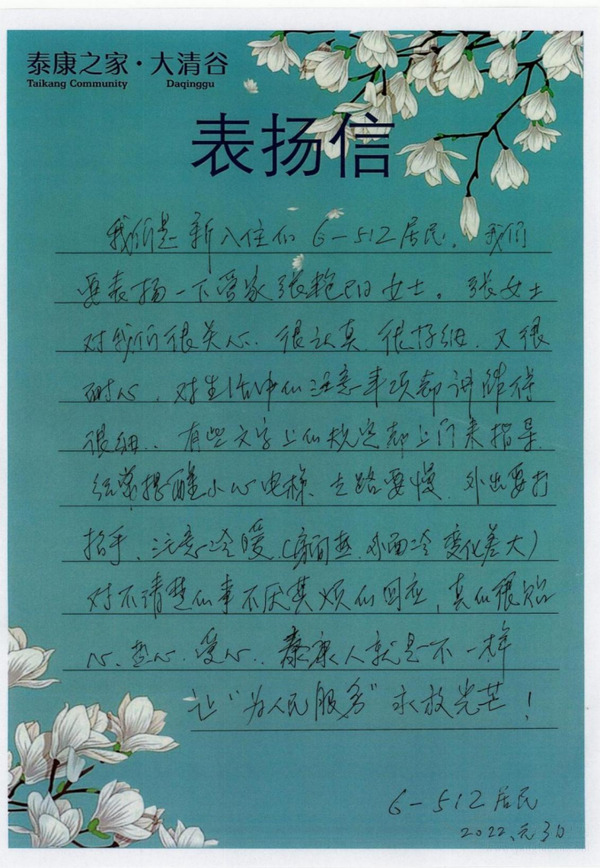 泰康之家·大清谷
Taikang Community Daqinggu
表扬信
我们是新入住的6-512居民。我们
要表扬一下管家张艳女士。张女士
对我们很关心、很认真、很仔细、又很
耐心,对生活中的注意事项都讲解得
很细、有些文字上的规定都上门来指导
经常提醒小心电梯、走路要慢、外出要打
招手、注意冷暖、(房间热、外面冷变化差大)
对不清楚的事不厌其烦的回应,真的很贴
心、热心、爱心、泰康人就是不一样
让“为人民服务”永放光芒!
6-512居民
2022、元、3日